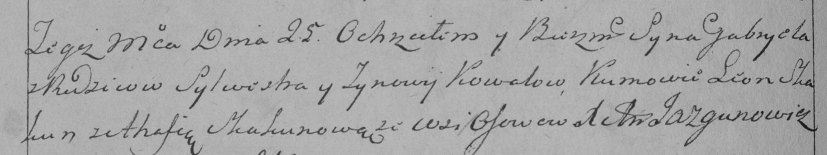 Tegoż Mca Dnia 25. Ochrzciłem y Bierzm Syna Gabryela
z Rodzicow Sylwestra y Zynowij Kowalow, Kumowie Leon Ska
kun z Athafią Skakunową ze wsi Osowow X An Jazgunowicz